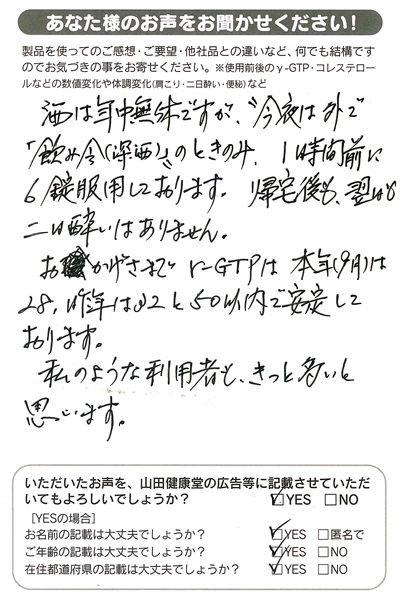 あなた様のお声をお聞かせください！
製品を使ってのご感想・ご要望・他社品との違いなど、何でも結構です
のでお気づきの事をお寄せください。※使用前後のγ-GTP・コレステロー
ルなどの数値変化や体調変化(肩こり・二日酔い・便秘)など
酒は年中無休ですが、〝今夜は外で
「飲み会(深酒)〟のときのみ、1時間前に
6錠服用しております。帰宅後も、翌日も
二日酔いはありません。
おかげさまで r-GTPは本年(9月)は
28、昨年は32と50以内で安定して
おります。
私のような利用者も、きっと多いと
思います。
いただいたお声を、山田健康堂の広告等に記載させていただ
いてもよろしいでしょうか？ ☑YES □NO
[YESの場合]
お名前の記載は大丈夫でしょうか？ ☑YES □匿名で
ご年齢の記載は大丈夫でしょうか？ ☑YES □NO
在住都道府県の記載は大丈夫でしょうか？ ☑YES □NO